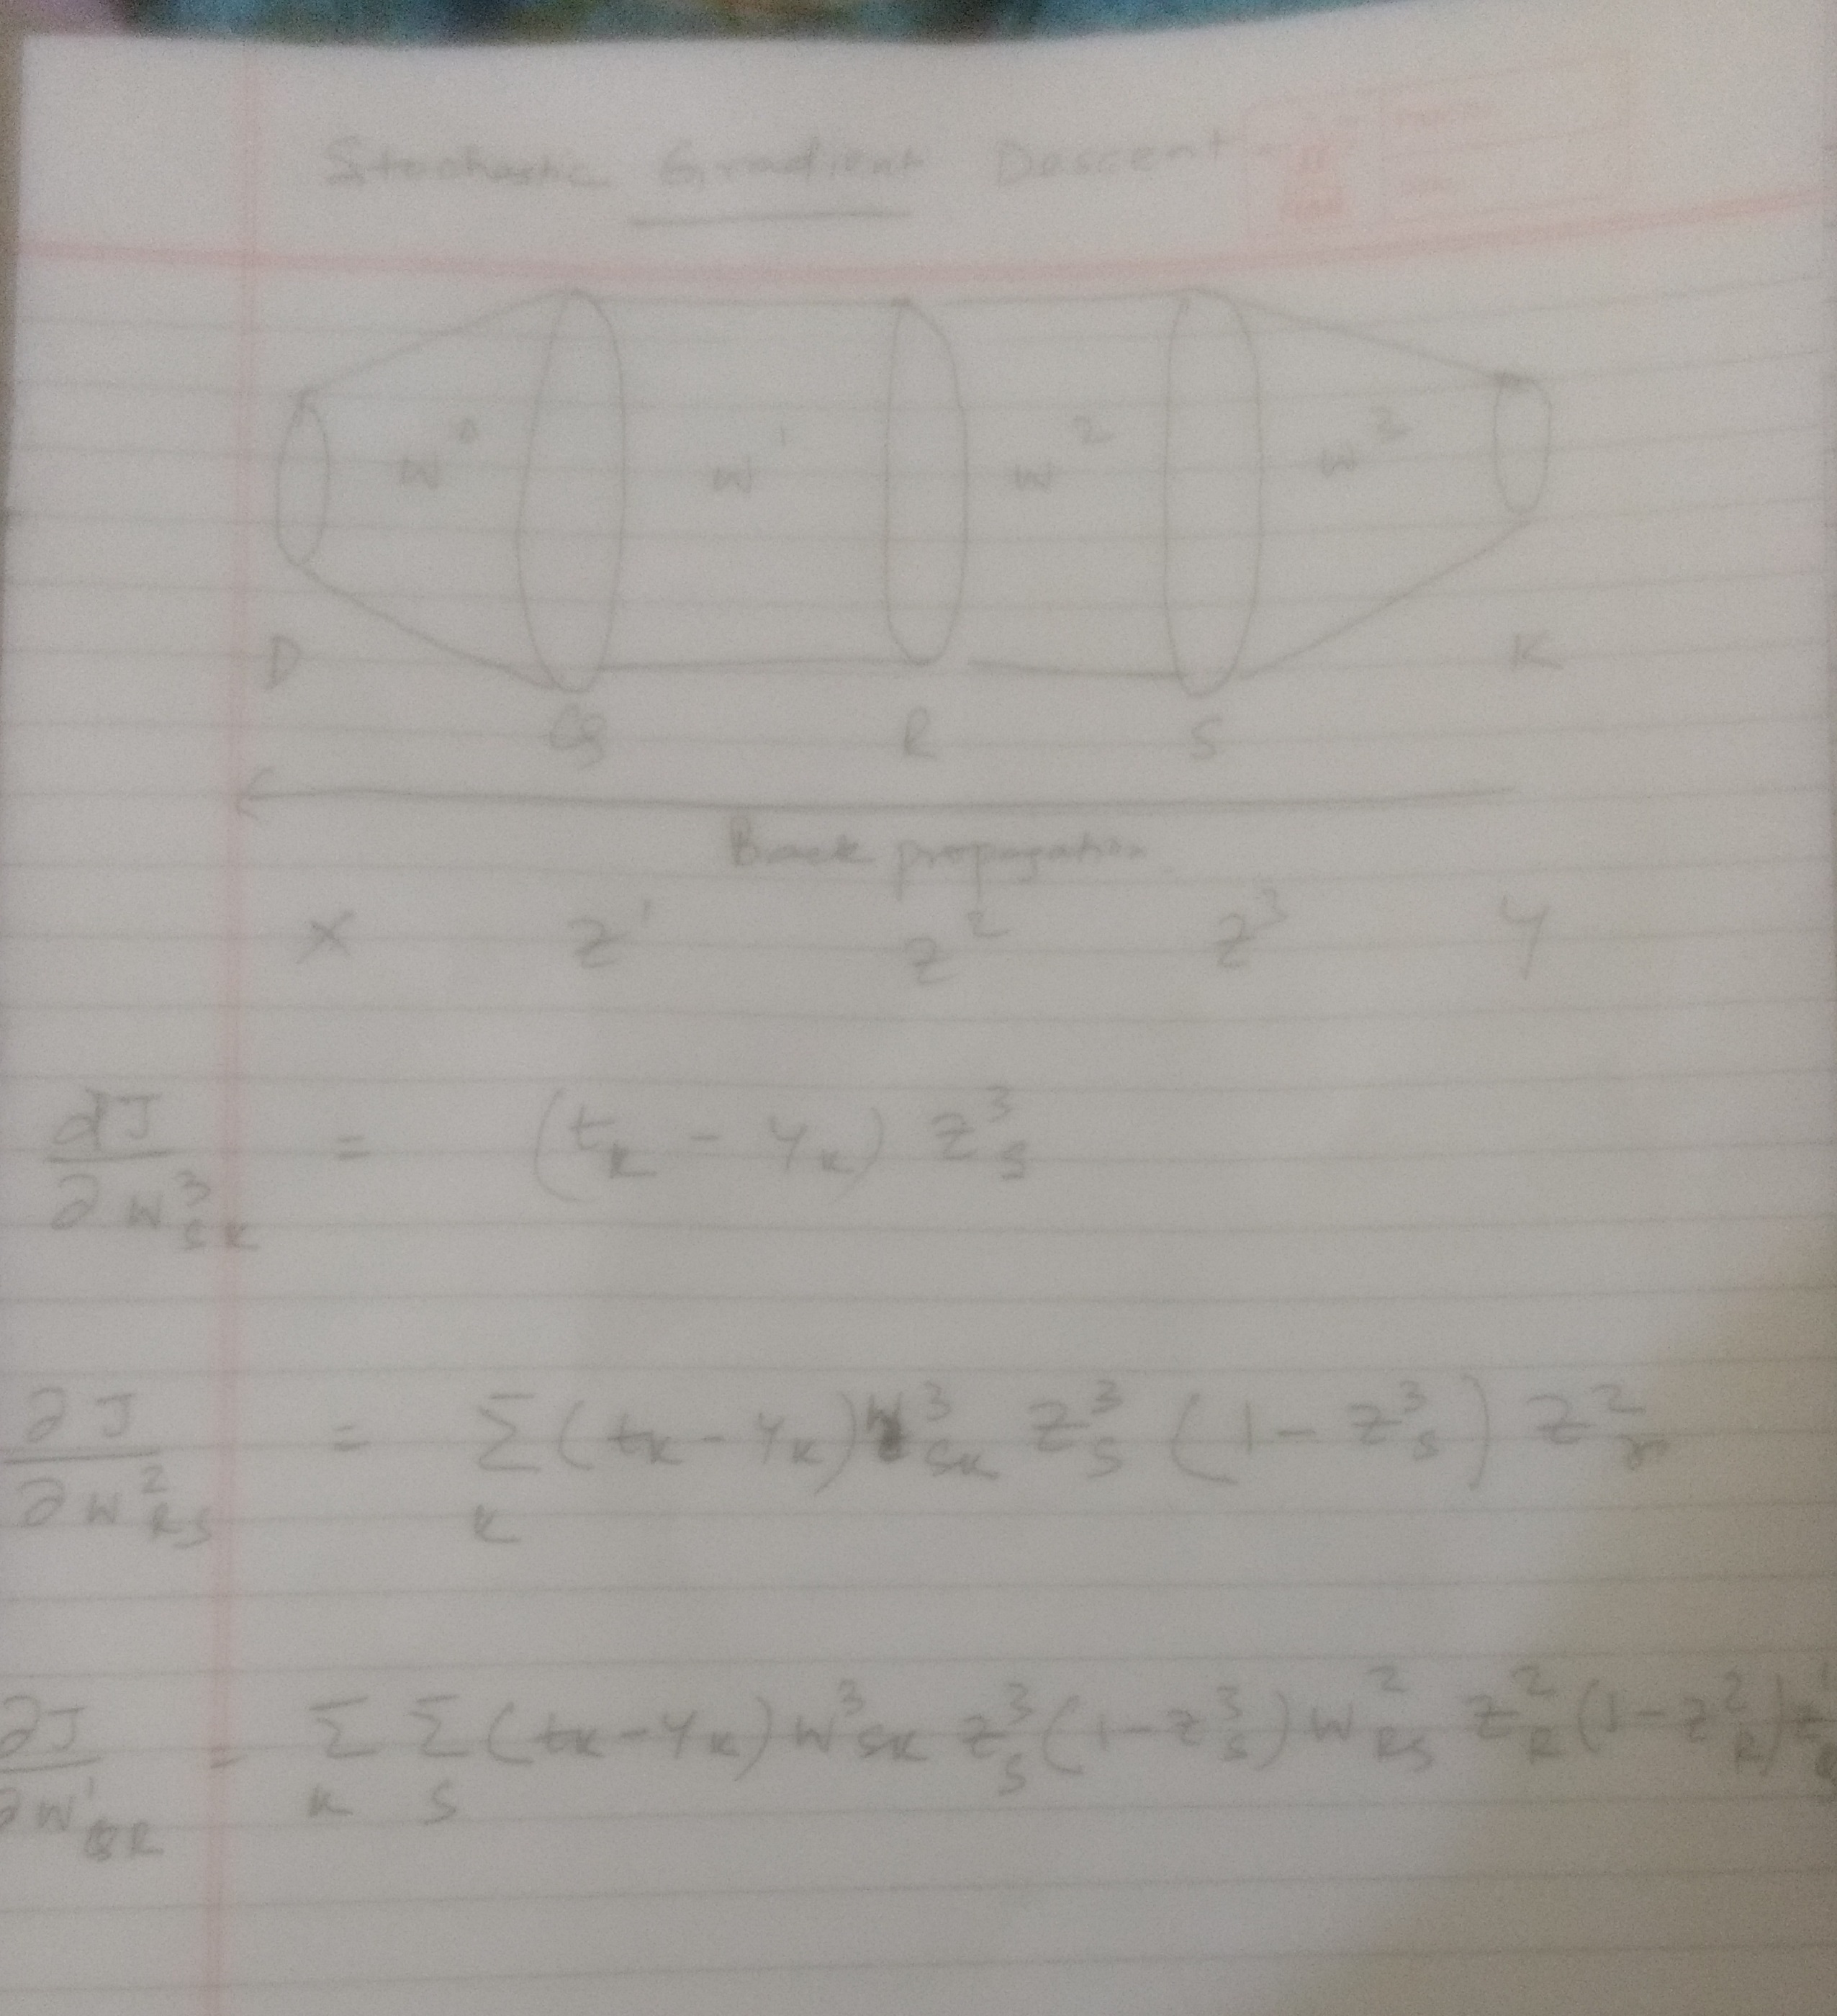 Stochastic Gradient Descent
W⁰ W¹ W² W³
D Q R S K
Back propagation
X Z¹ Z² Z³ Y
∂J/∂W³_SK = (t_K - Y_K) Z³_S
∂J/∂W²_RS = Σ_K (t_K - Y_K) W³_SK Z³_S (1 - Z³_S) Z²_r
∂J/∂W¹_QR = Σ_K Σ_S (t_K - Y_K) W³_SK Z³_S (1 - Z³_S) W²_RS Z²_R (1 - Z²_R) Z¹_Q